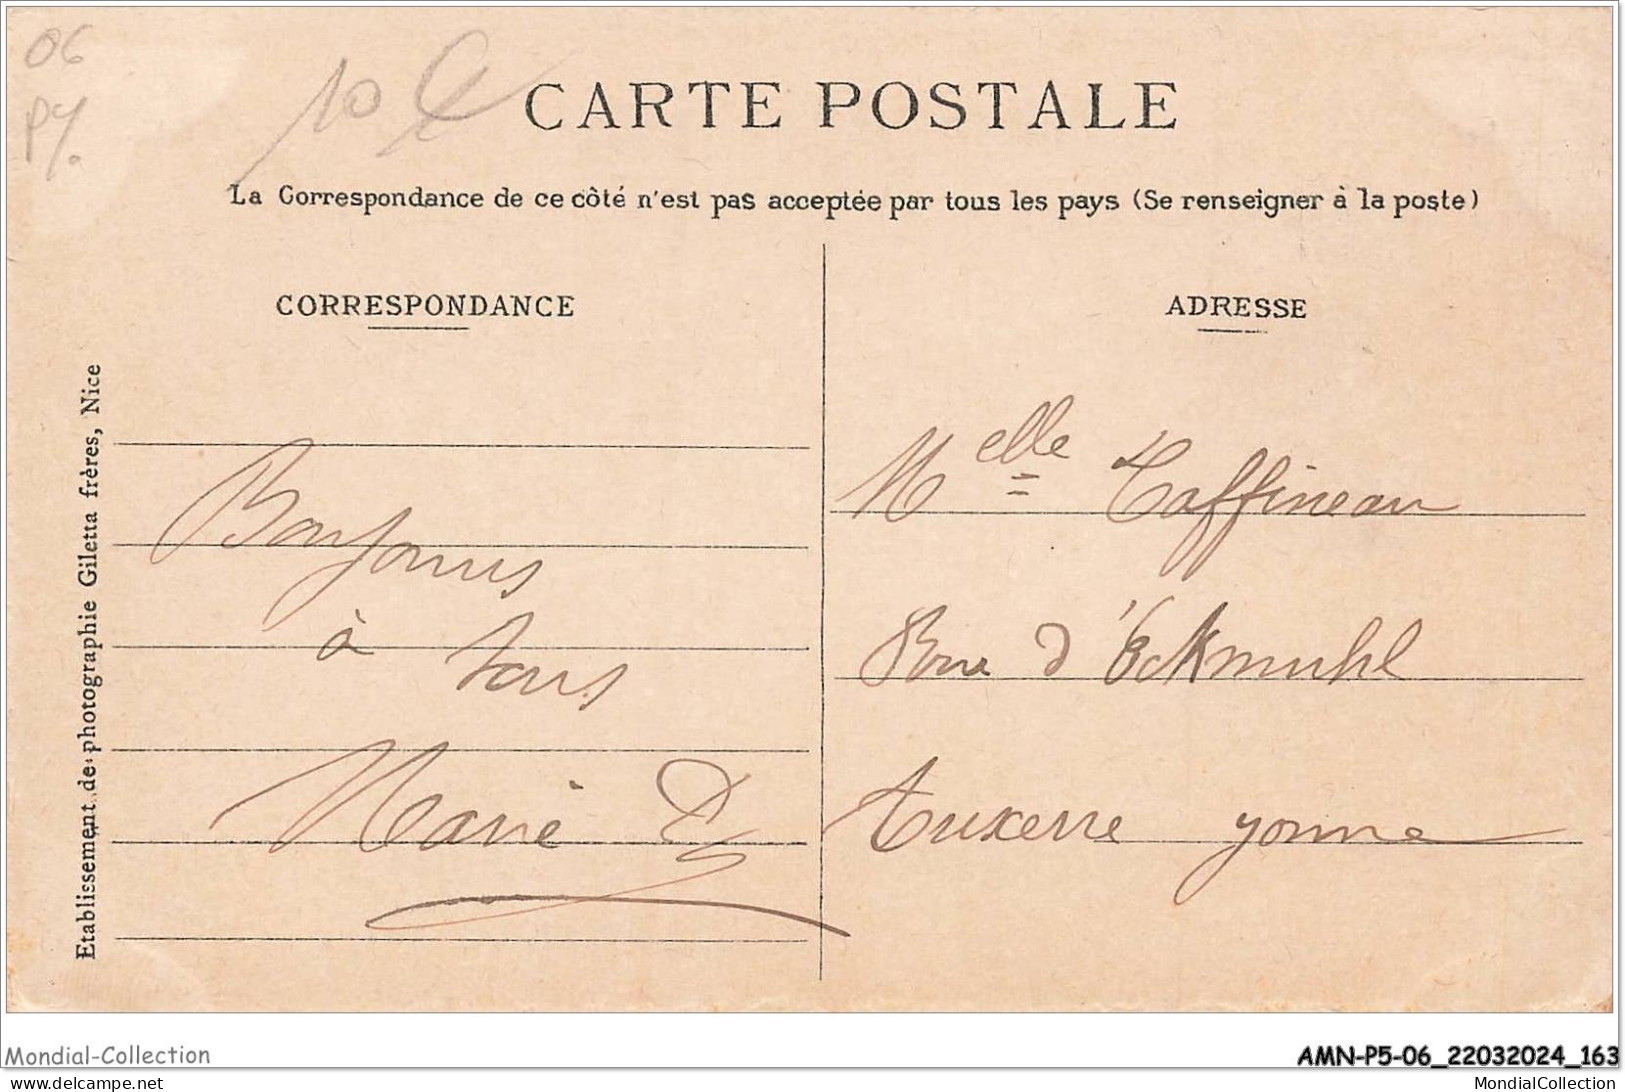 06
PY.
10 €
CARTE POSTALE
La Correspondance de ce côté n'est pas acceptée par tous les pays (Se renseigner à la poste)
CORRESPONDANCE
Bonjours
à tous
Marie D
Etablissement de photographie Giletta frères, Nice
ADRESSE
Melle Taffineau
Rue d'Eckmuhl
Auxerre yonne
Mondial-Collection
AMN-P5-06_22032024_163
delcampe.net
MondialCollection